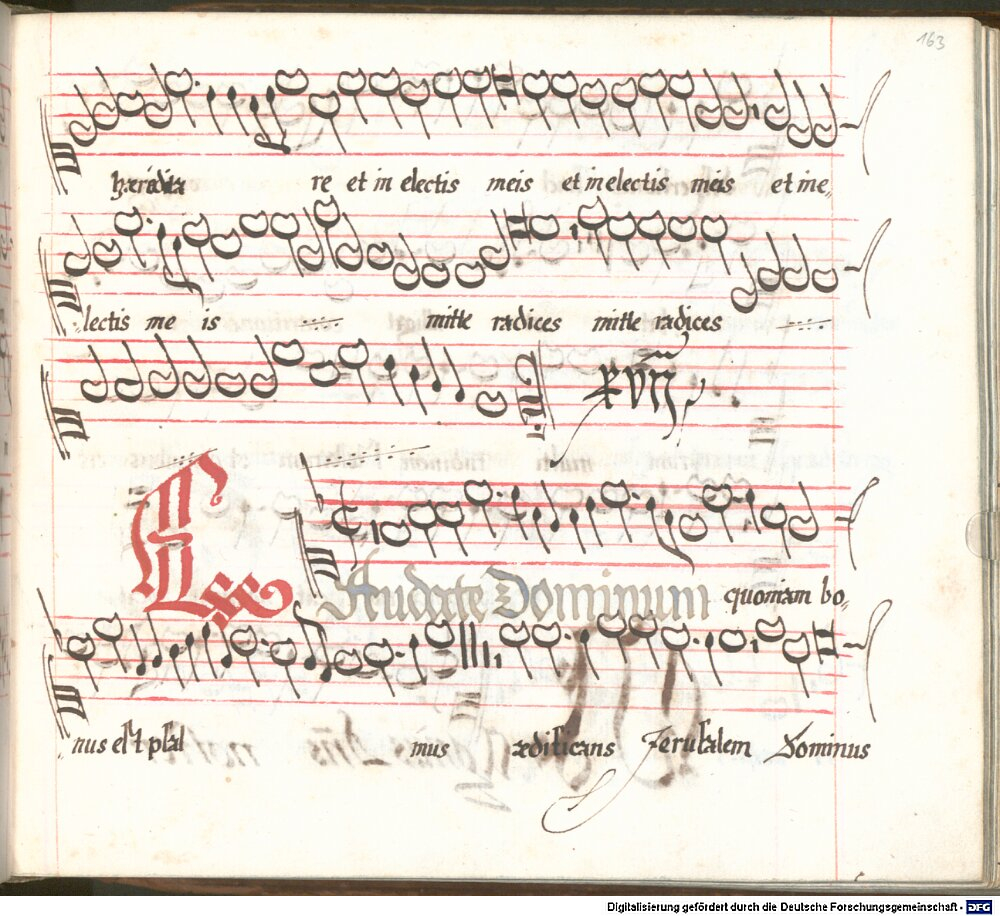 163
hæredita re et in electis meis et in electis meis et in e,
lectis me is mitte radices mitte radices
XVII
Laudate Dominum quoniam bo,
nus est psal mus ædificans Jerusalem Dominus
Digitalisierung gefördert durch die Deutsche Forschungsgemeinschaft - DFG